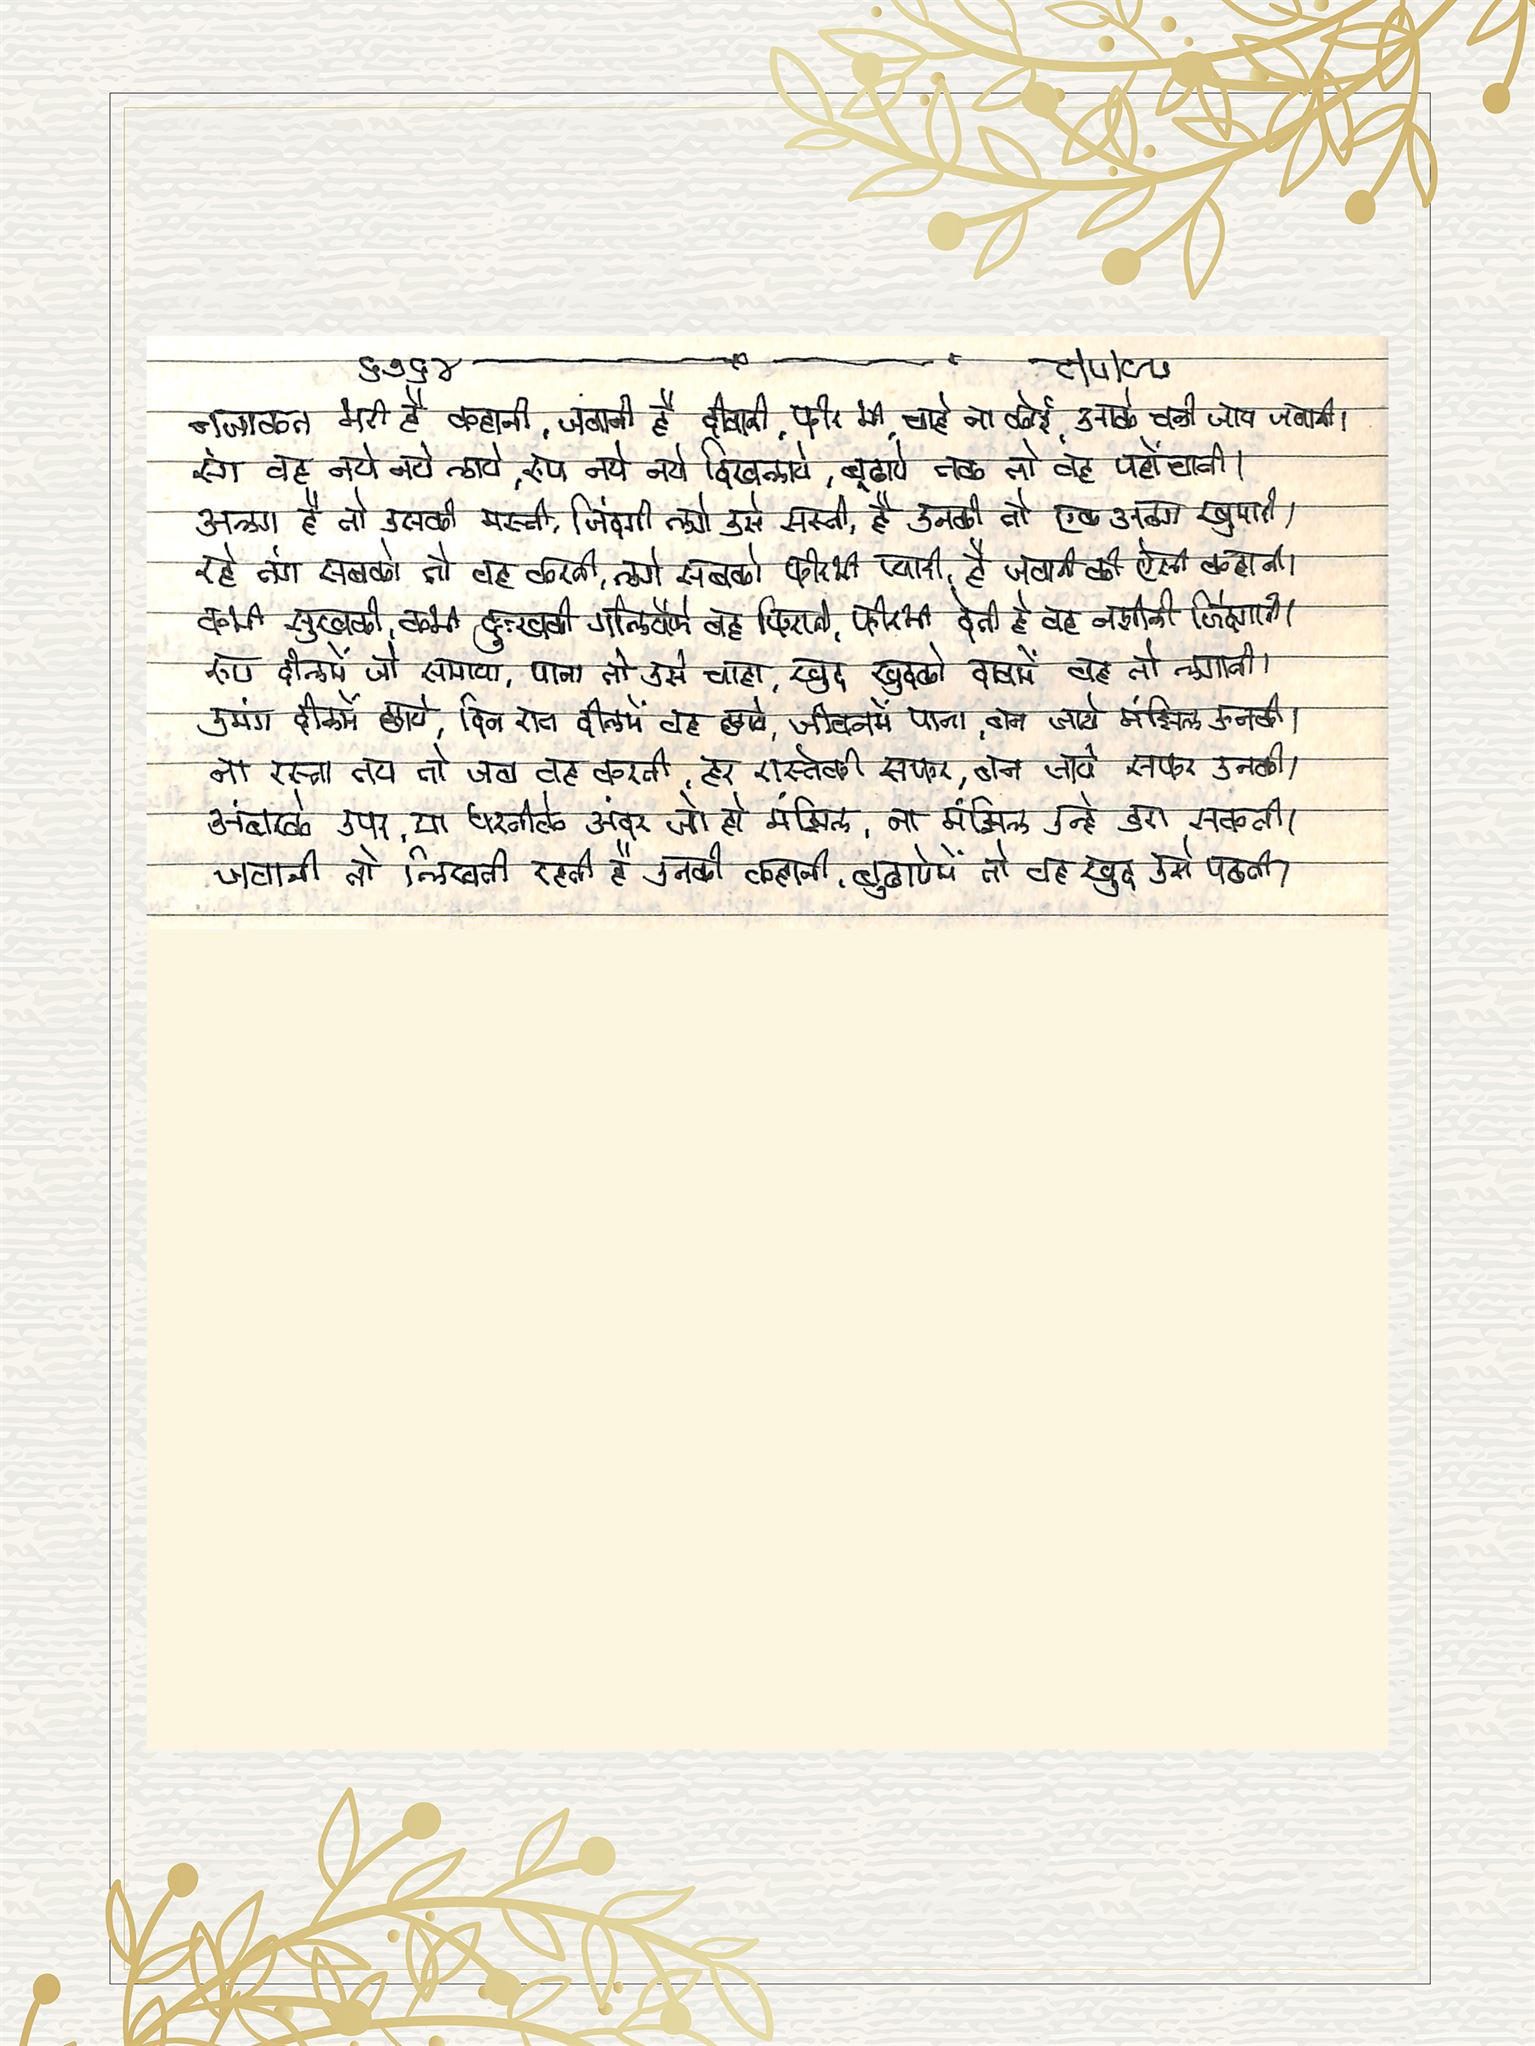 ६७६४ ८/५/८५
नजाकत भरी है कहानी, जवानी है दीवानी, फीर भी, चाहे ना कोई, उनके चली जाय जवानी।
रंग वह नये नये लाये, रूप नये नये दिखलाये, बूढापे तक तो वह पहोंचाती।
अलग है तो उसकी मस्ती, जिंदगी लगे उसे सस्ती, है उनकी तो एक अलग खुमारी।
रहे तंग सबको तो वह करती, लगे सबको फीरभी प्यारी, है जवानी की ऐसी कहानी।
कभी सुखकी, कभी दुःखकी गलियोंमें वह फिराती, फीरभी देती है वह नशीली जिंदगानी।
रूप दीलमें जो समाया, पाना तो उसे चाहा, खुद खुदको दावमें वह तो लगाती।
उमंग दीलमें छाये, दिन रात दीलमें वह छाये, जीवनमें पाना, बन जाये मंझिल उनकी।
ना रस्ता तय तो जब वह करती, हर रास्तेकी सफर, बन जाये सफर उनकी।
अंबरके उपर, या धरतीके अंदर जो हो मंझिल, ना मंझिल उन्हे डरा सकती।
जवानी तो लिखती रहती है उनकी कहानी, बुढापेमें तो वह खुद उसे पढती।